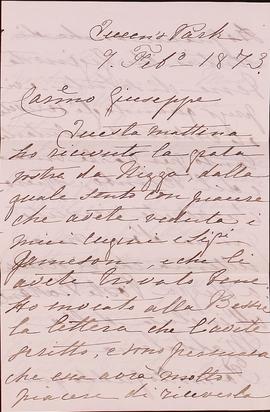 Queen's Park
7. Feb.º 1873
Carᵐᵒ Giuseppe
Questa mattina
ho ricevuto la grata
vostra da Nizza, dalla
quale sento con piacere
che avete veduto i
miei cugini e Sigⁱ
Jameson, e che li
avete trovato bene
Ho inviato alla Bessie
la lettera che l'avete
scritto, e sono persuasa
che essa avrà molto
piacere di riceverla